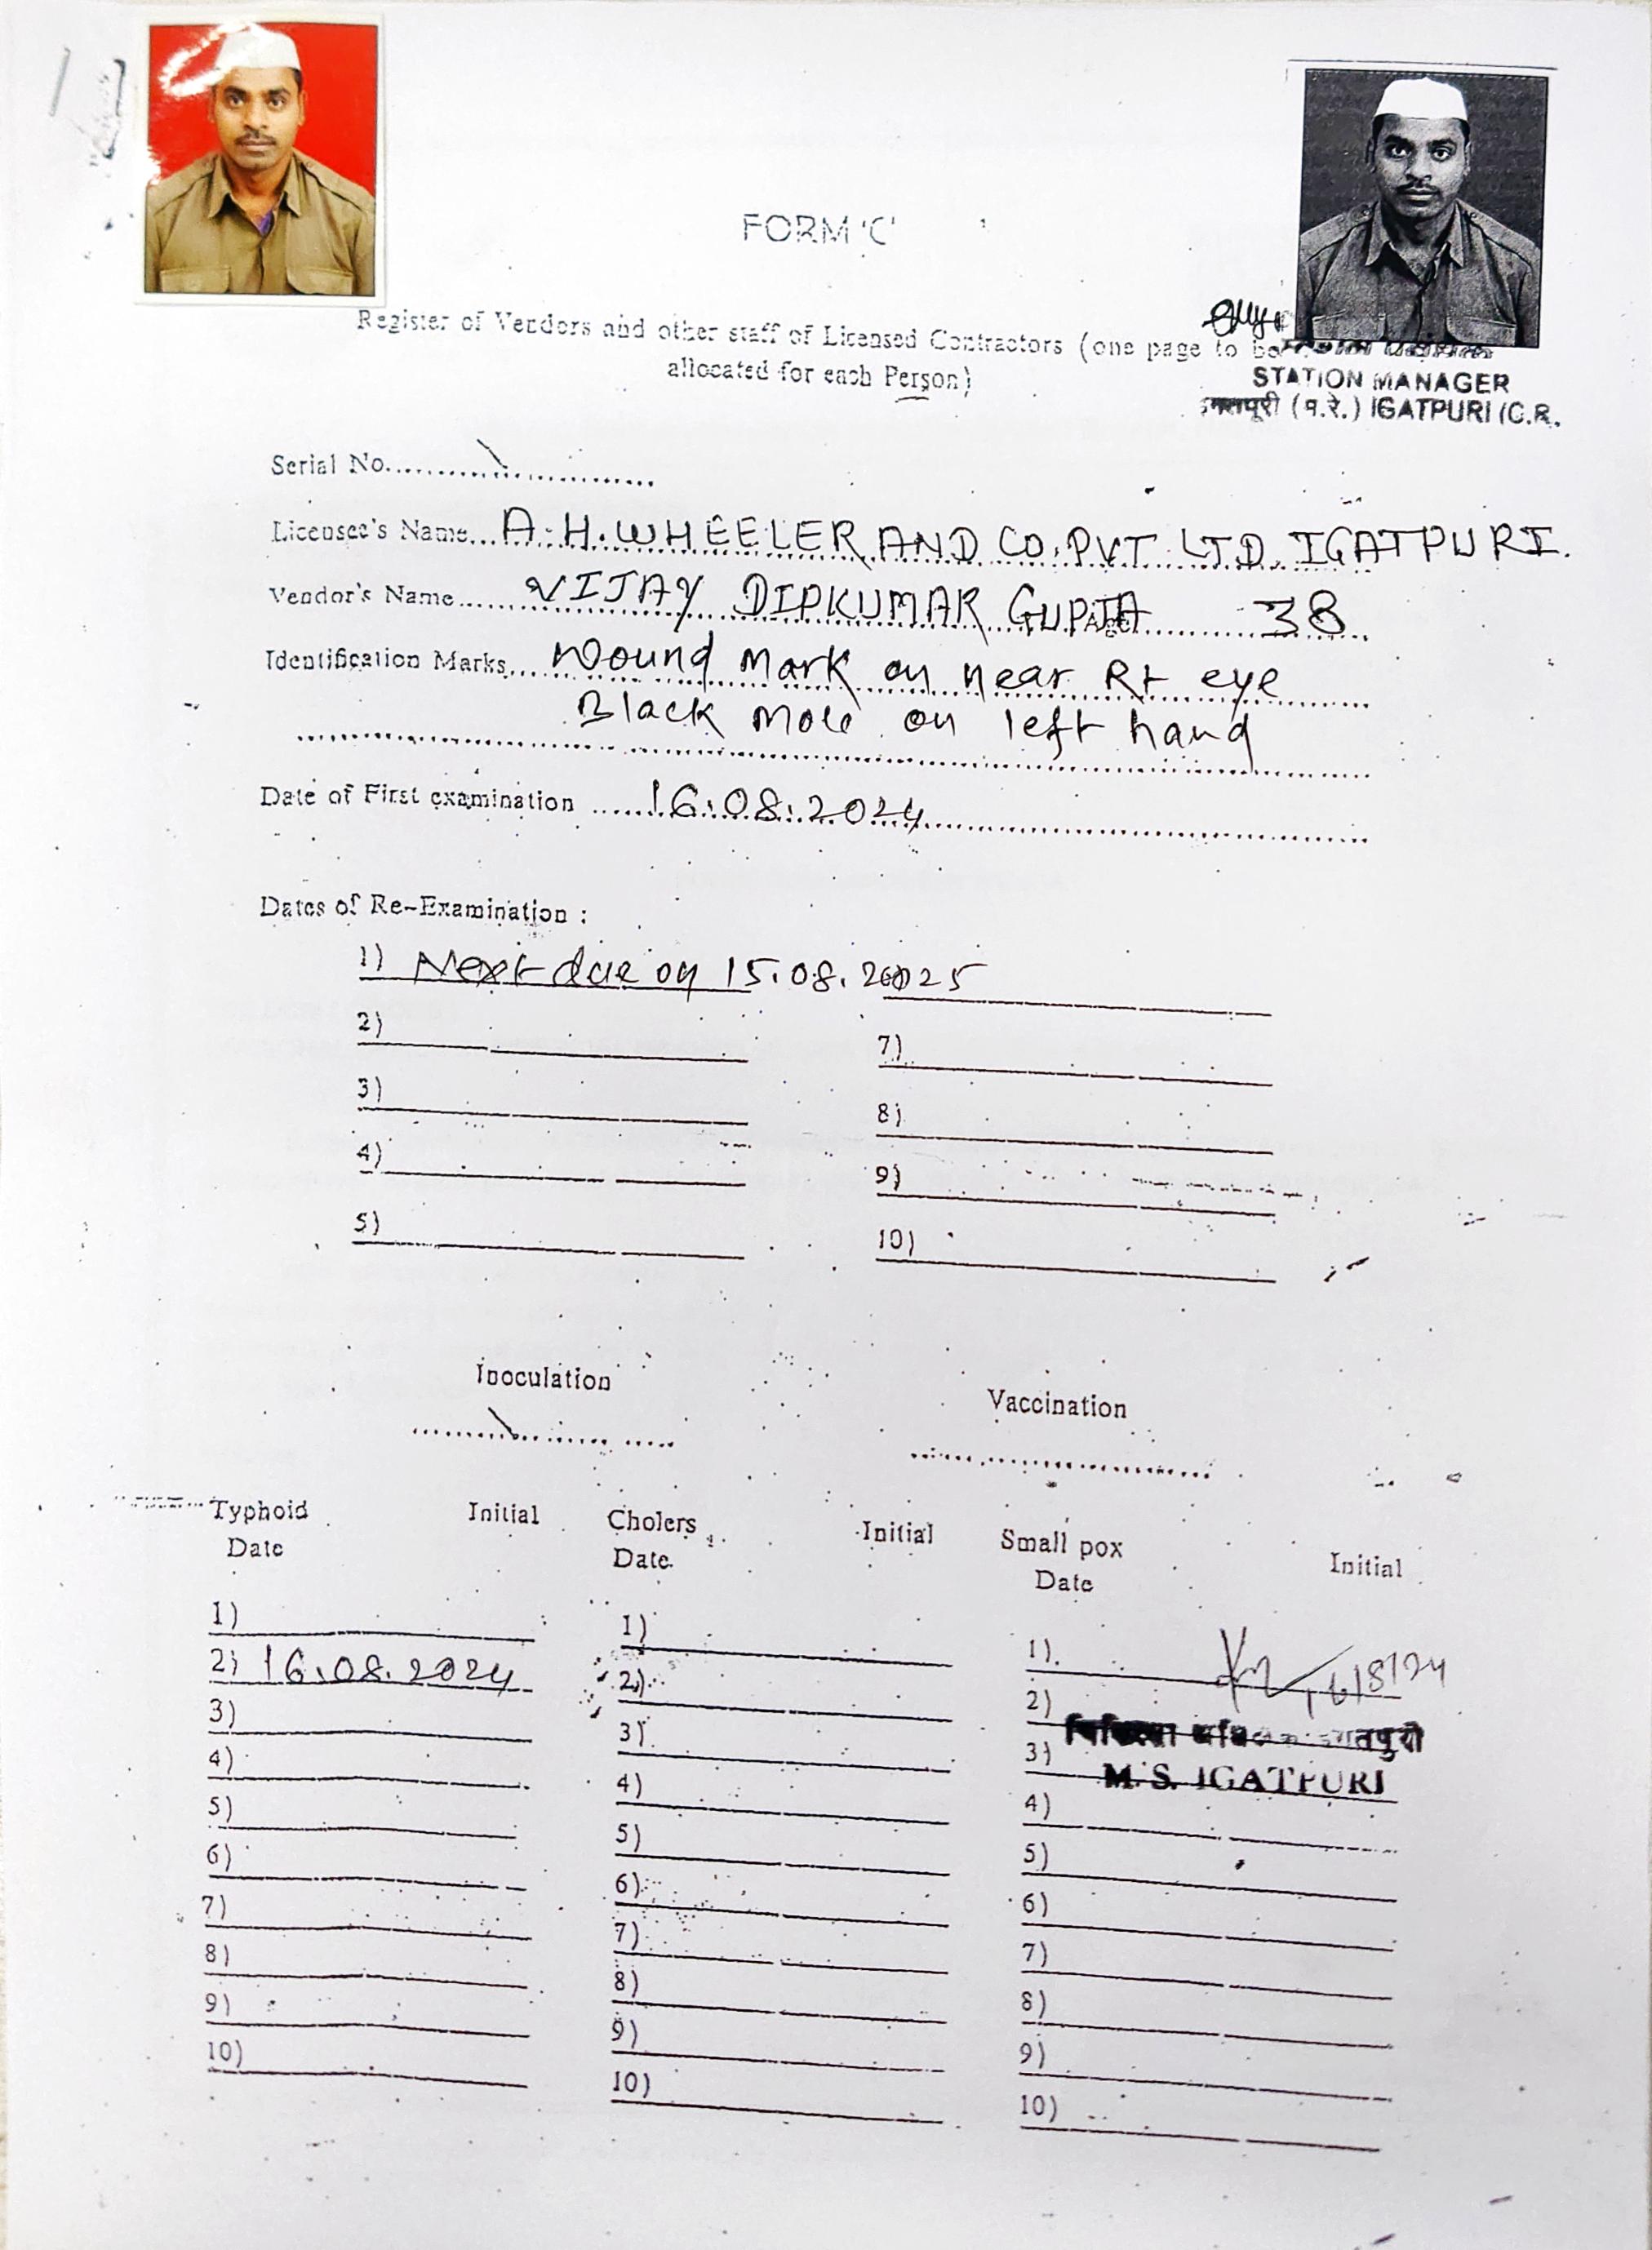 FORM 'C'
Register of Vendors and other staff of Licensed Contractors (one page to be
allocated for each Person)
STATION MANAGER
(म.रे.) IGATPURI (C.R.
Serial No.
Licensee's Name A.H. WHEELER AND CO. PVT LTD. IGATPURI.
Vendor's Name VIJAY DIPKUMAR GUPTA Age 38
Identification Marks Wound Mark on near Rt eye
Black Mole on left hand
Date of First examination 16.08.2024
Dates of Re-Examination :
1) Next due on 15.08.2025
2)
7)
3)
8)
4)
9)
5)
10)
Inoculation
Vaccination
Typhoid Initial Cholers Initial Small pox Initial
Date Date Date
1) 1) 1)
2) 16.08.2024 2) 2) 16/8/24
3) 3) 3)
M.S. IGATPURI
4) 4) 4)
5) 5) 5)
6) 6) 6)
7) 7) 7)
8) 8) 8)
9) 9) 9)
10) 10) 10)